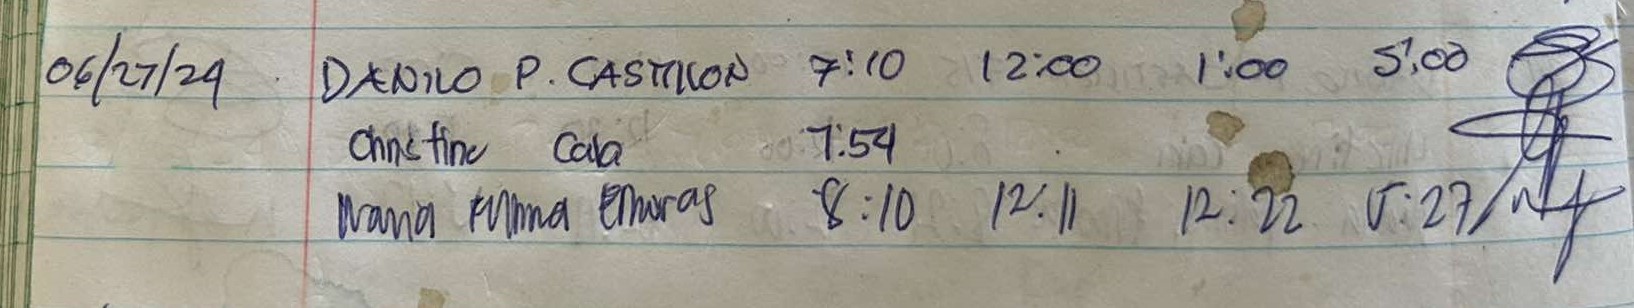 06/27/24 DANILO P. CASTILLON 7:10 12:00 1:00 5:00
Christine Cala 7:54
Maria 8:10 12:11 12:22 5:27